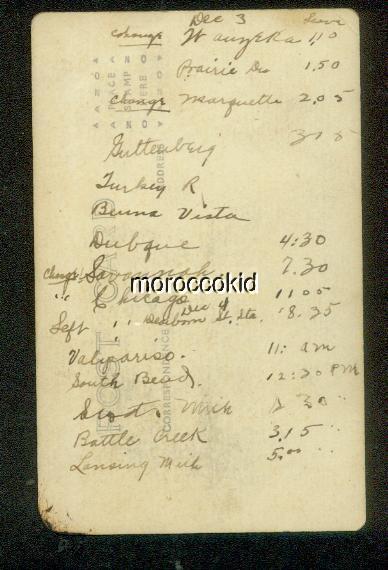 Dec 3 Leave
change Wauzeka 1,10
Prairie Du 1.50
change Marquette 2.05
Guttenberg 305
Turkey R
Beuna Vista
Dubque 4:30
change Savannah 7.30
" Chicago 11 05
Dec 4
Left " Dearborn St. Sta. 8.35
Valipariso. 11: am
South Bend. 12:30 PM
Mich 30 "
Battle Creek 3.15 "
Lansing Mich 5.00 "
moroccokid
POST CARD
PLACE STAMP HERE
CORRESPONDENCE
ADDRESS